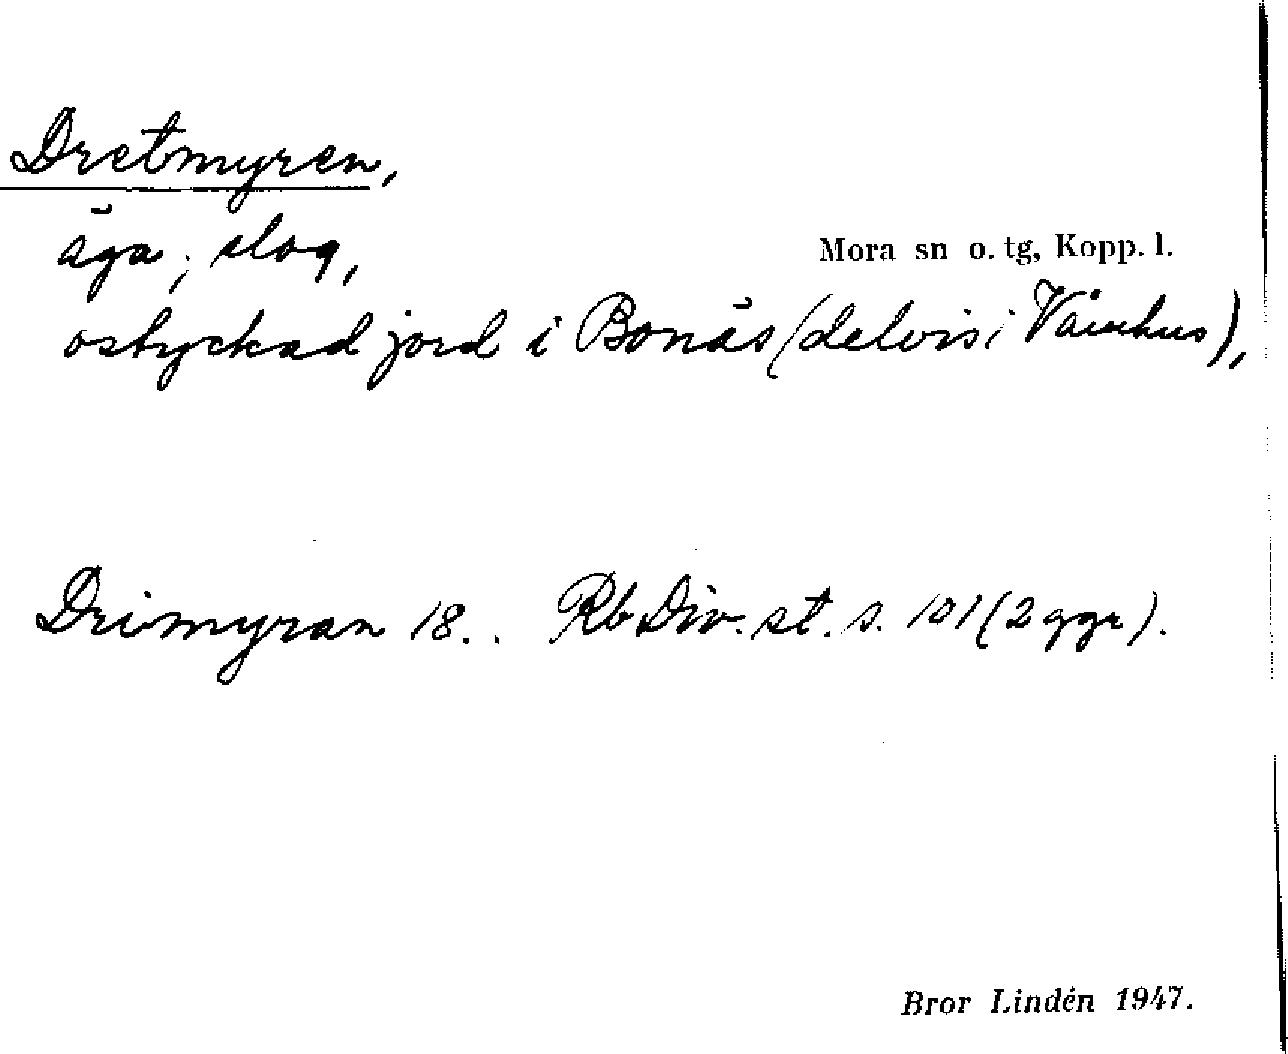 Dretmyren,
äga; slog,
Mora sn o. tg, Kopp. l.
ostyckad jord i Bonäs (delvis i Våmhus),
Drivmyran 18.. Rb Div. st. s. 101 (2 ggr).
Bror Lindén 1947.